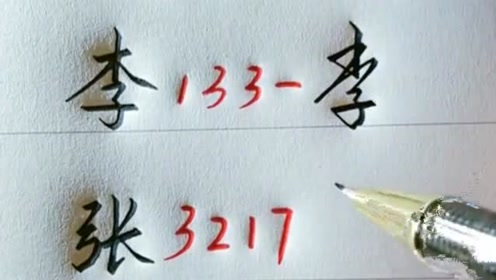 李133-李
张3217